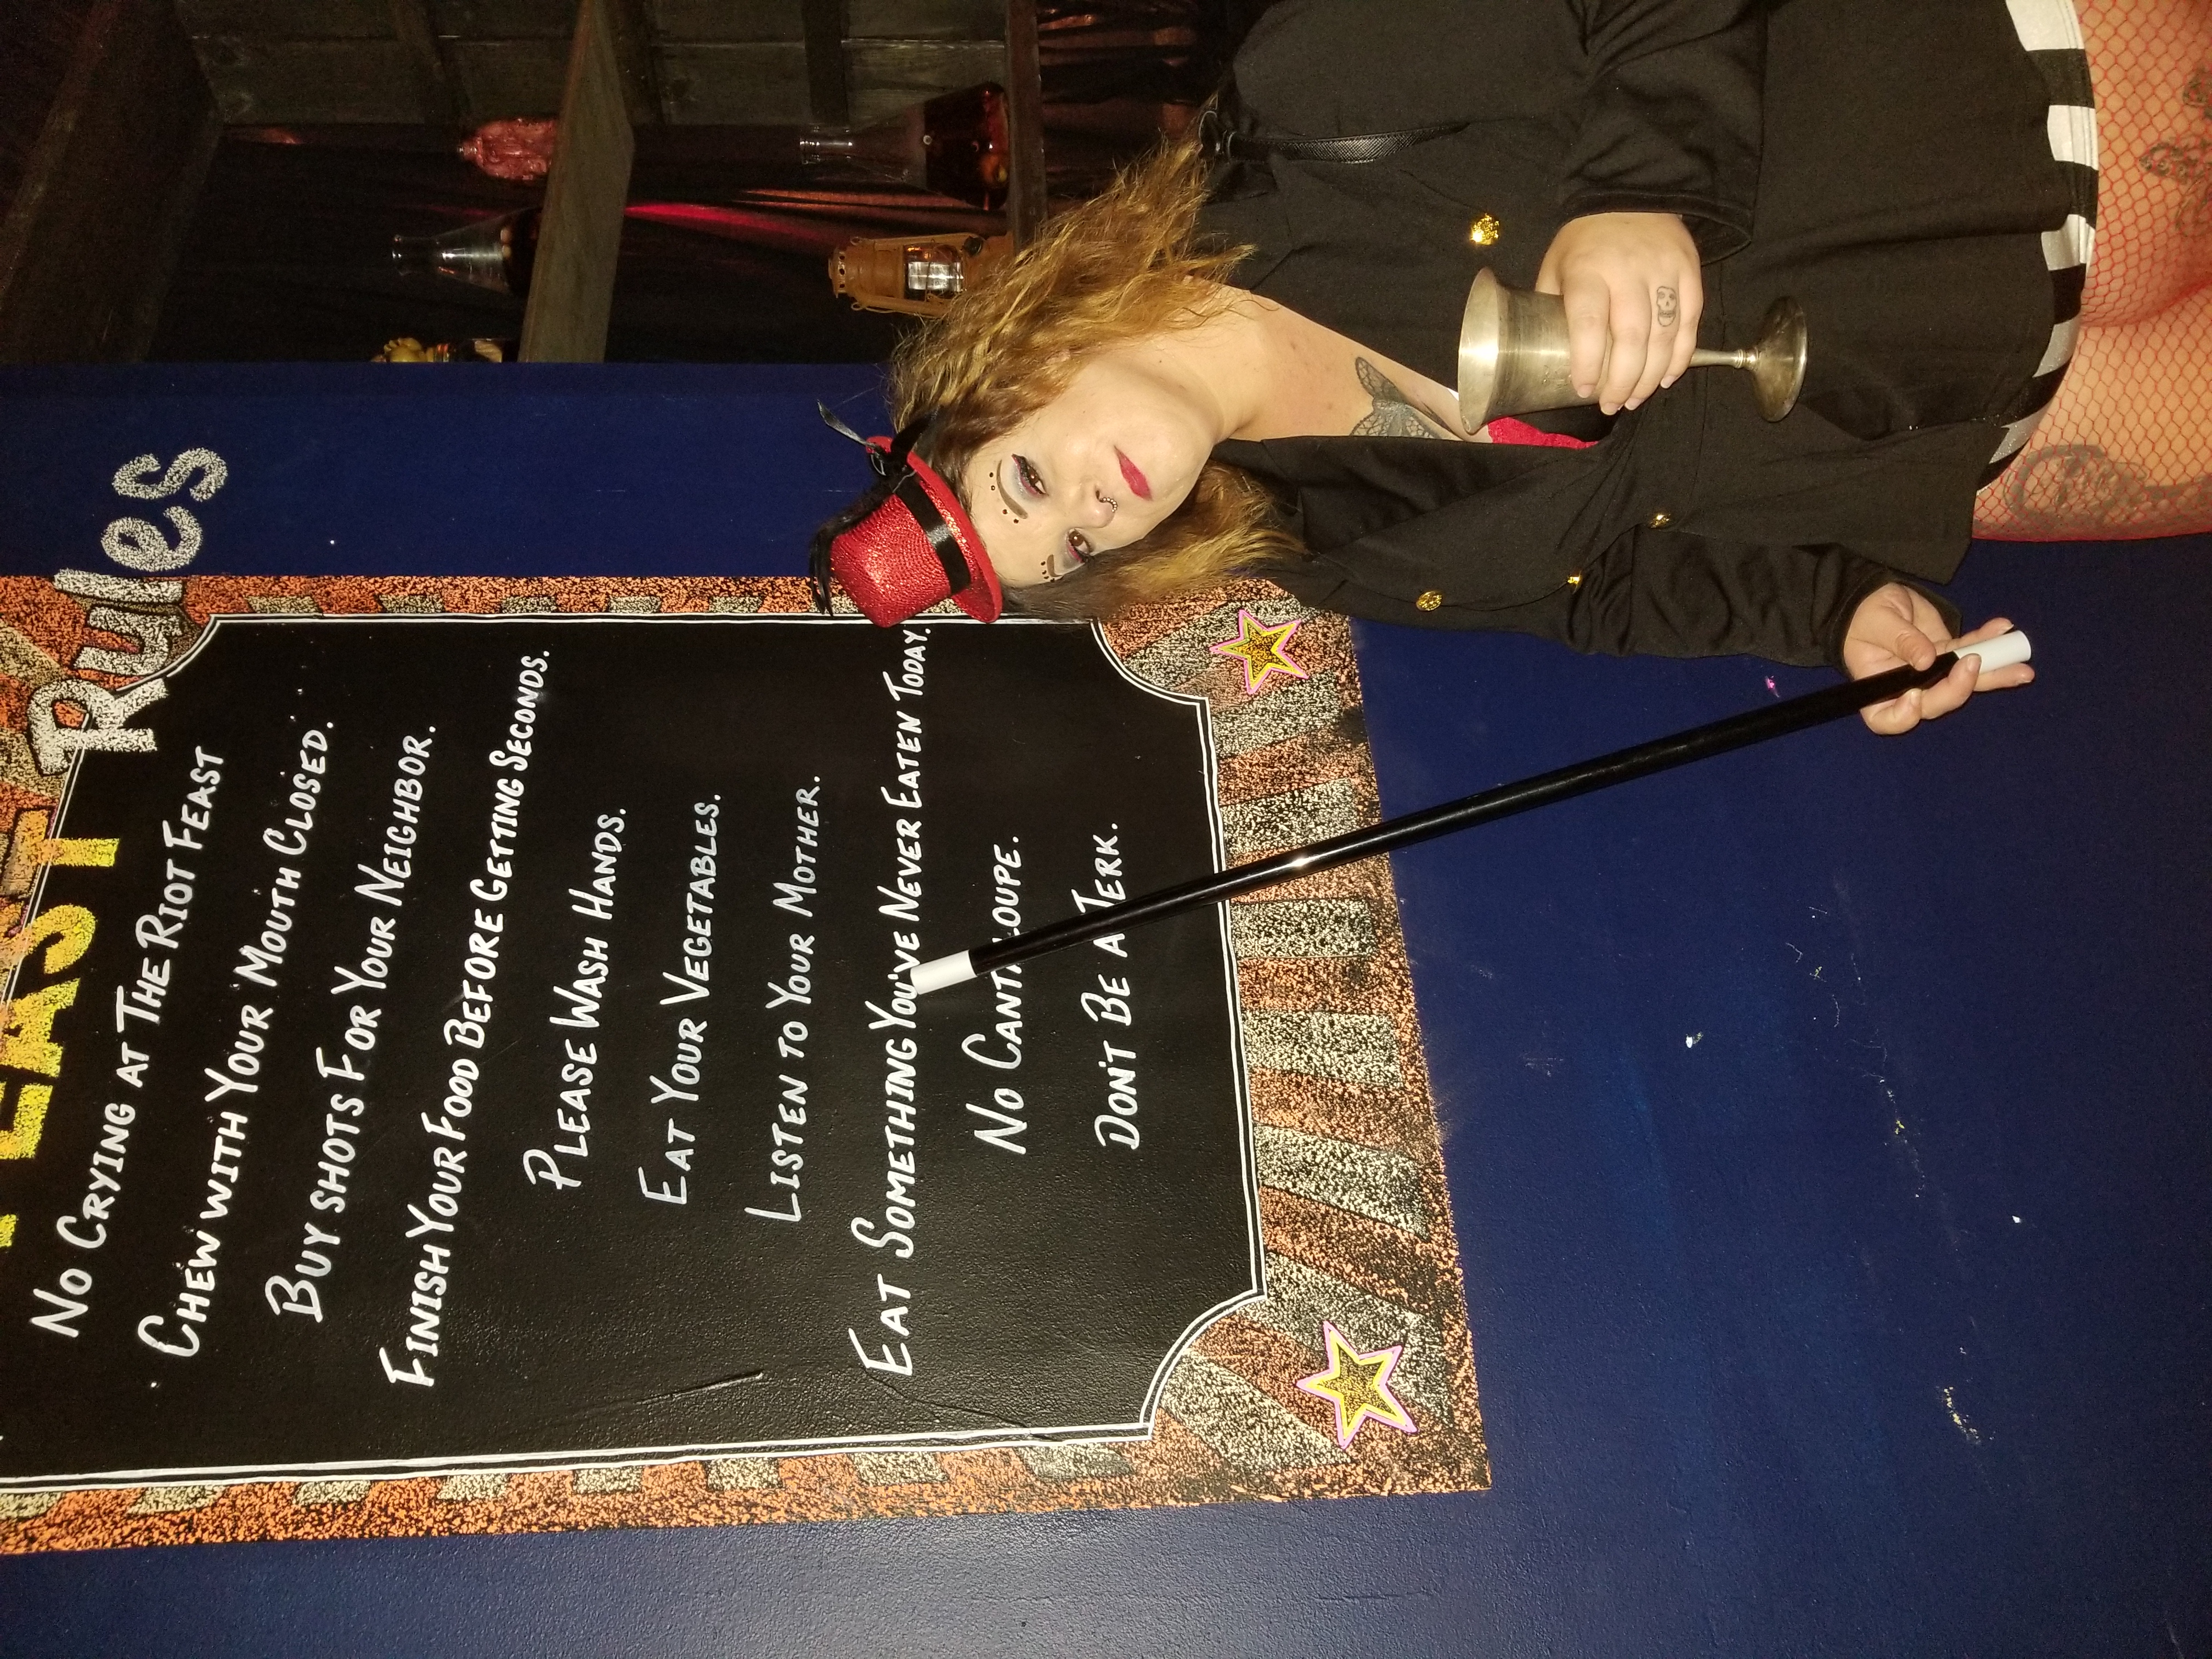 FEAST Rules
No Crying at The Riot Feast
Chew with Your Mouth Closed.
Buy Shots For Your Neighbor.
Finish Your Food Before Getting Seconds.
Please Wash Hands.
Eat Your Vegetables.
Listen to Your Mother.
Eat Something You've Never Eaten Today.
No Cantaloupe.
Don't Be a Jerk.